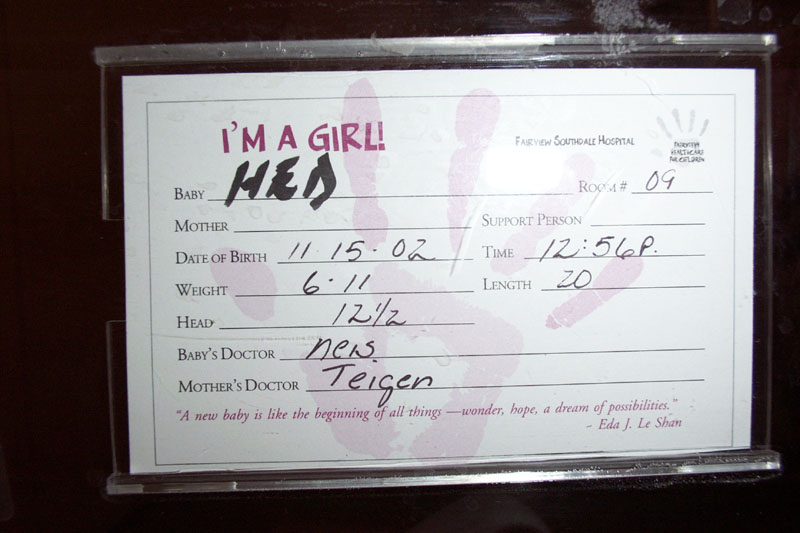 I'M A GIRL!
FAIRVIEW SOUTHDALE HOSPITAL
FAIRVIEW
HEALTHCARE
FOR CHILDREN
BABY HED ROOM # 09
MOTHER SUPPORT PERSON
DATE OF BIRTH 11-15-02 TIME 12:56P.
WEIGHT 6-11 LENGTH 20
HEAD 12 1/2
BABY'S DOCTOR Neis
MOTHER'S DOCTOR Teigen
"A new baby is like the beginning of all things — wonder, hope, a dream of possibilities."
~ Eda J. Le Shan